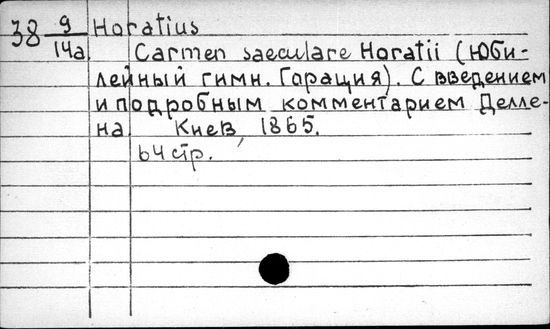 38 9/14а Horatius
Carmen saeculare Horatii (Юби-
лейный гимн. Горация). С введением
и подробным комментарием Делле-
на Киев, 1865.
64 стр.